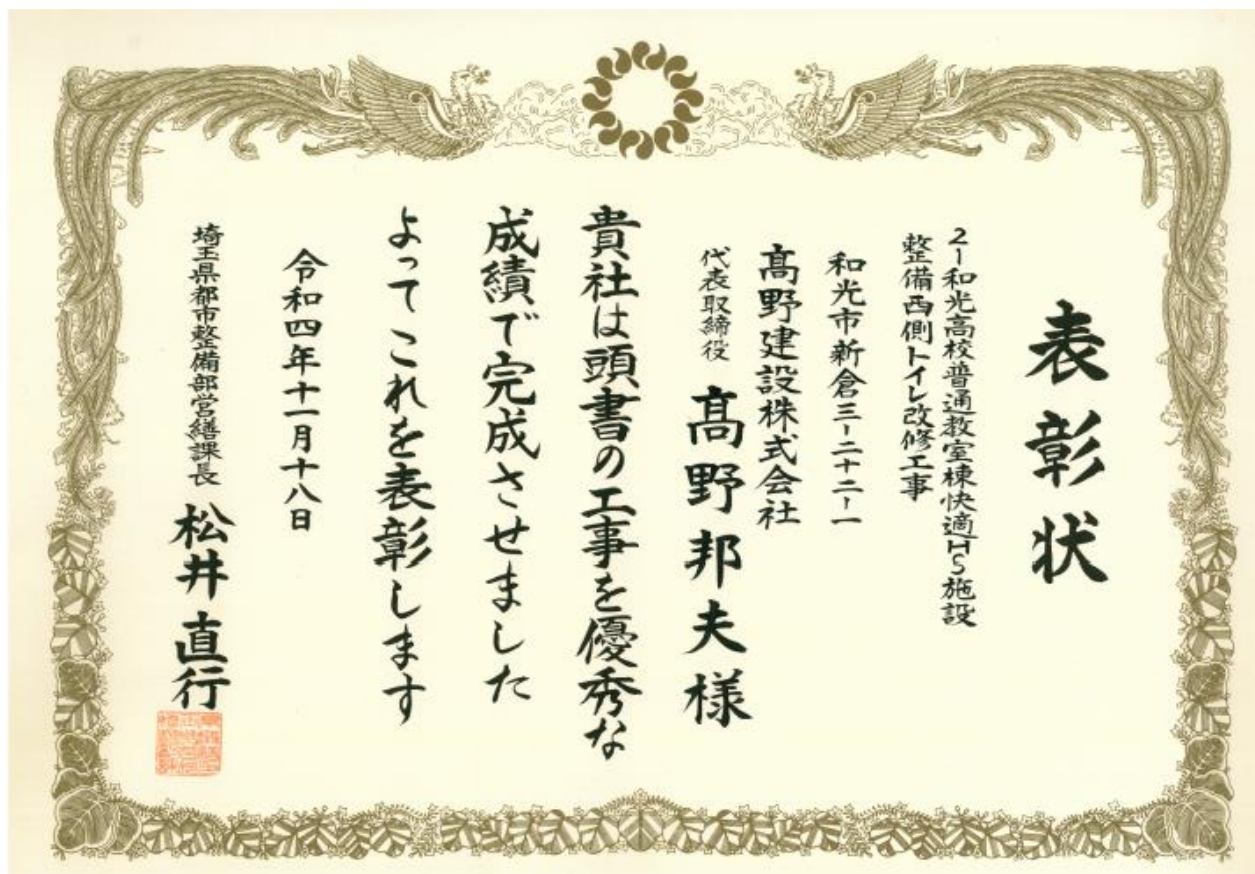 表彰状
2-和光高校普通教室棟快適HS施設
整備西側トイレ改修工事
和光市新倉三-二十二-一
髙野建設株式会社
代表取締役 髙野邦夫様
貴社は頭書の工事を優秀な
成績で完成させました
よってこれを表彰します
令和四年十一月十八日
埼玉県都市整備部営繕課長 松井直行